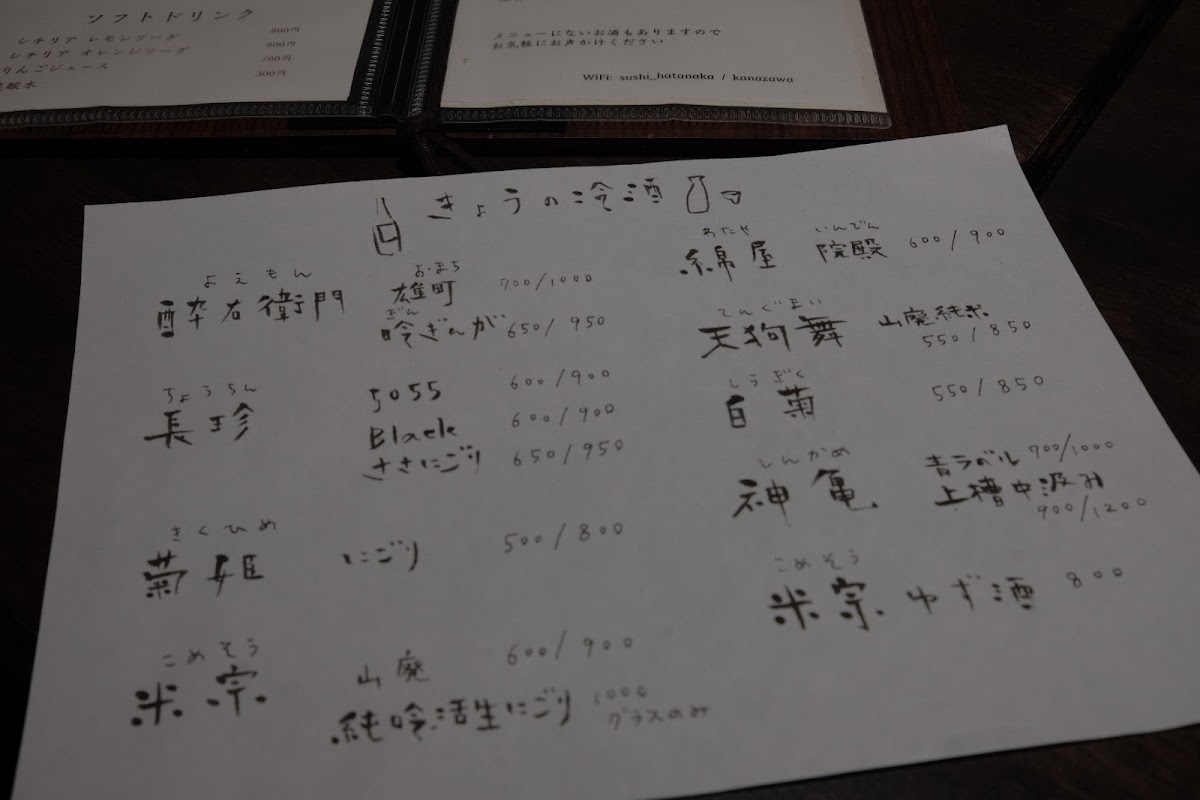 ソフトドリンク
シチリア レモンソーダ 800円
シチリア オレンジソーダ 800円
りんごジュース 700円
炭酸水 300円
メニューにないお酒もありますので
お気軽にお声かけください
WiFi: sushi_hatanaka / kanazawa
きょうの冷酒
よえもん おまち
酔右衛門 雄町 700/1000
ぎん
吟ぎんが 650/950
ちょうちん
長珍 5055 600/900
Black 600/900
ささにごり 650/950
きくひめ
菊姫 にごり 500/800
こめそう
米宗 山廃 600/900
純吟活生にごり 1000
グラスのみ
わたや いんでん
綿屋 院殿 600/900
てんぐまい
天狗舞 山廃純米
550/850
しらぎく
白菊 550/850
しんかめ
神亀 青ラベル 700/1000
上槽中汲み
900/1200
こめそう
米宗 ゆず酒 800